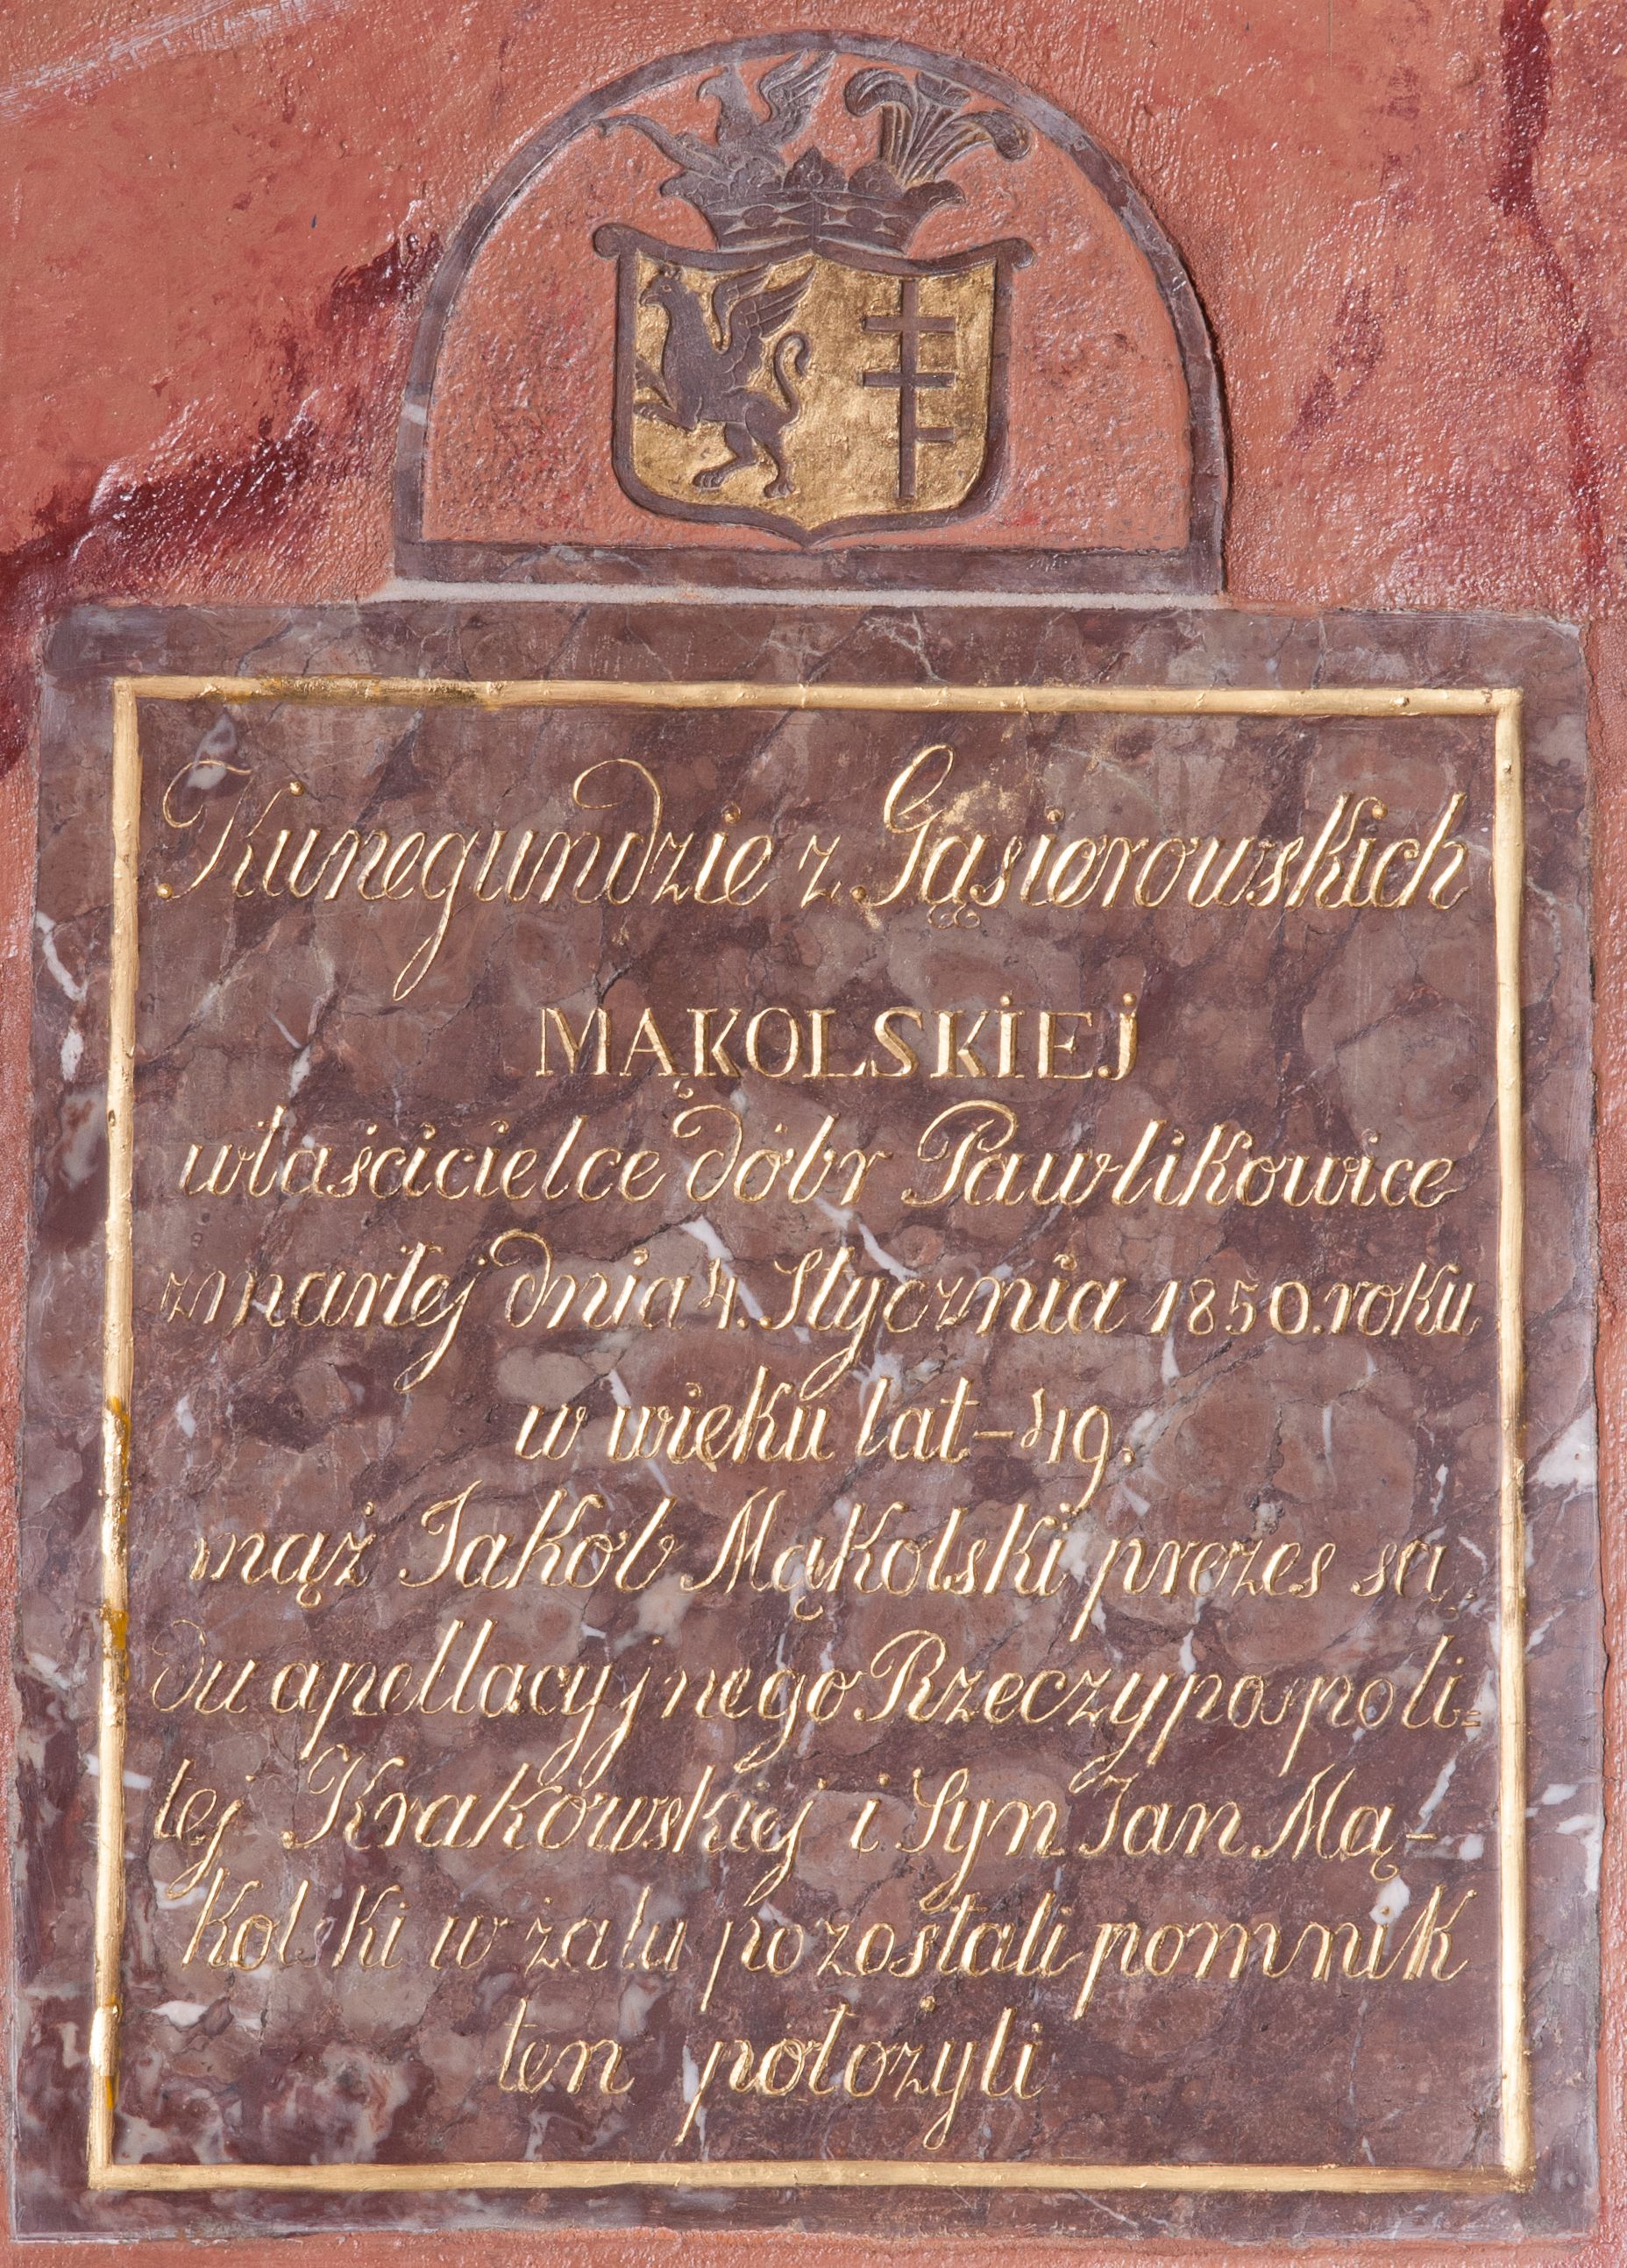 Kunegundzie z Gąsiorowskich
MĄKOLSKİEJ
właścicielce dóbr Pawlikowice
zmarłej dnia 4. Stycznia 1850. roku
w więku lat - 49.
mąż Jakób Mąkolski prezes są,
du apellacyjnego Rzeczypospoli=
tej Krakowskiej i Syn Jan Mą-
kolski w żalu pozostali pomnik
ten położyli